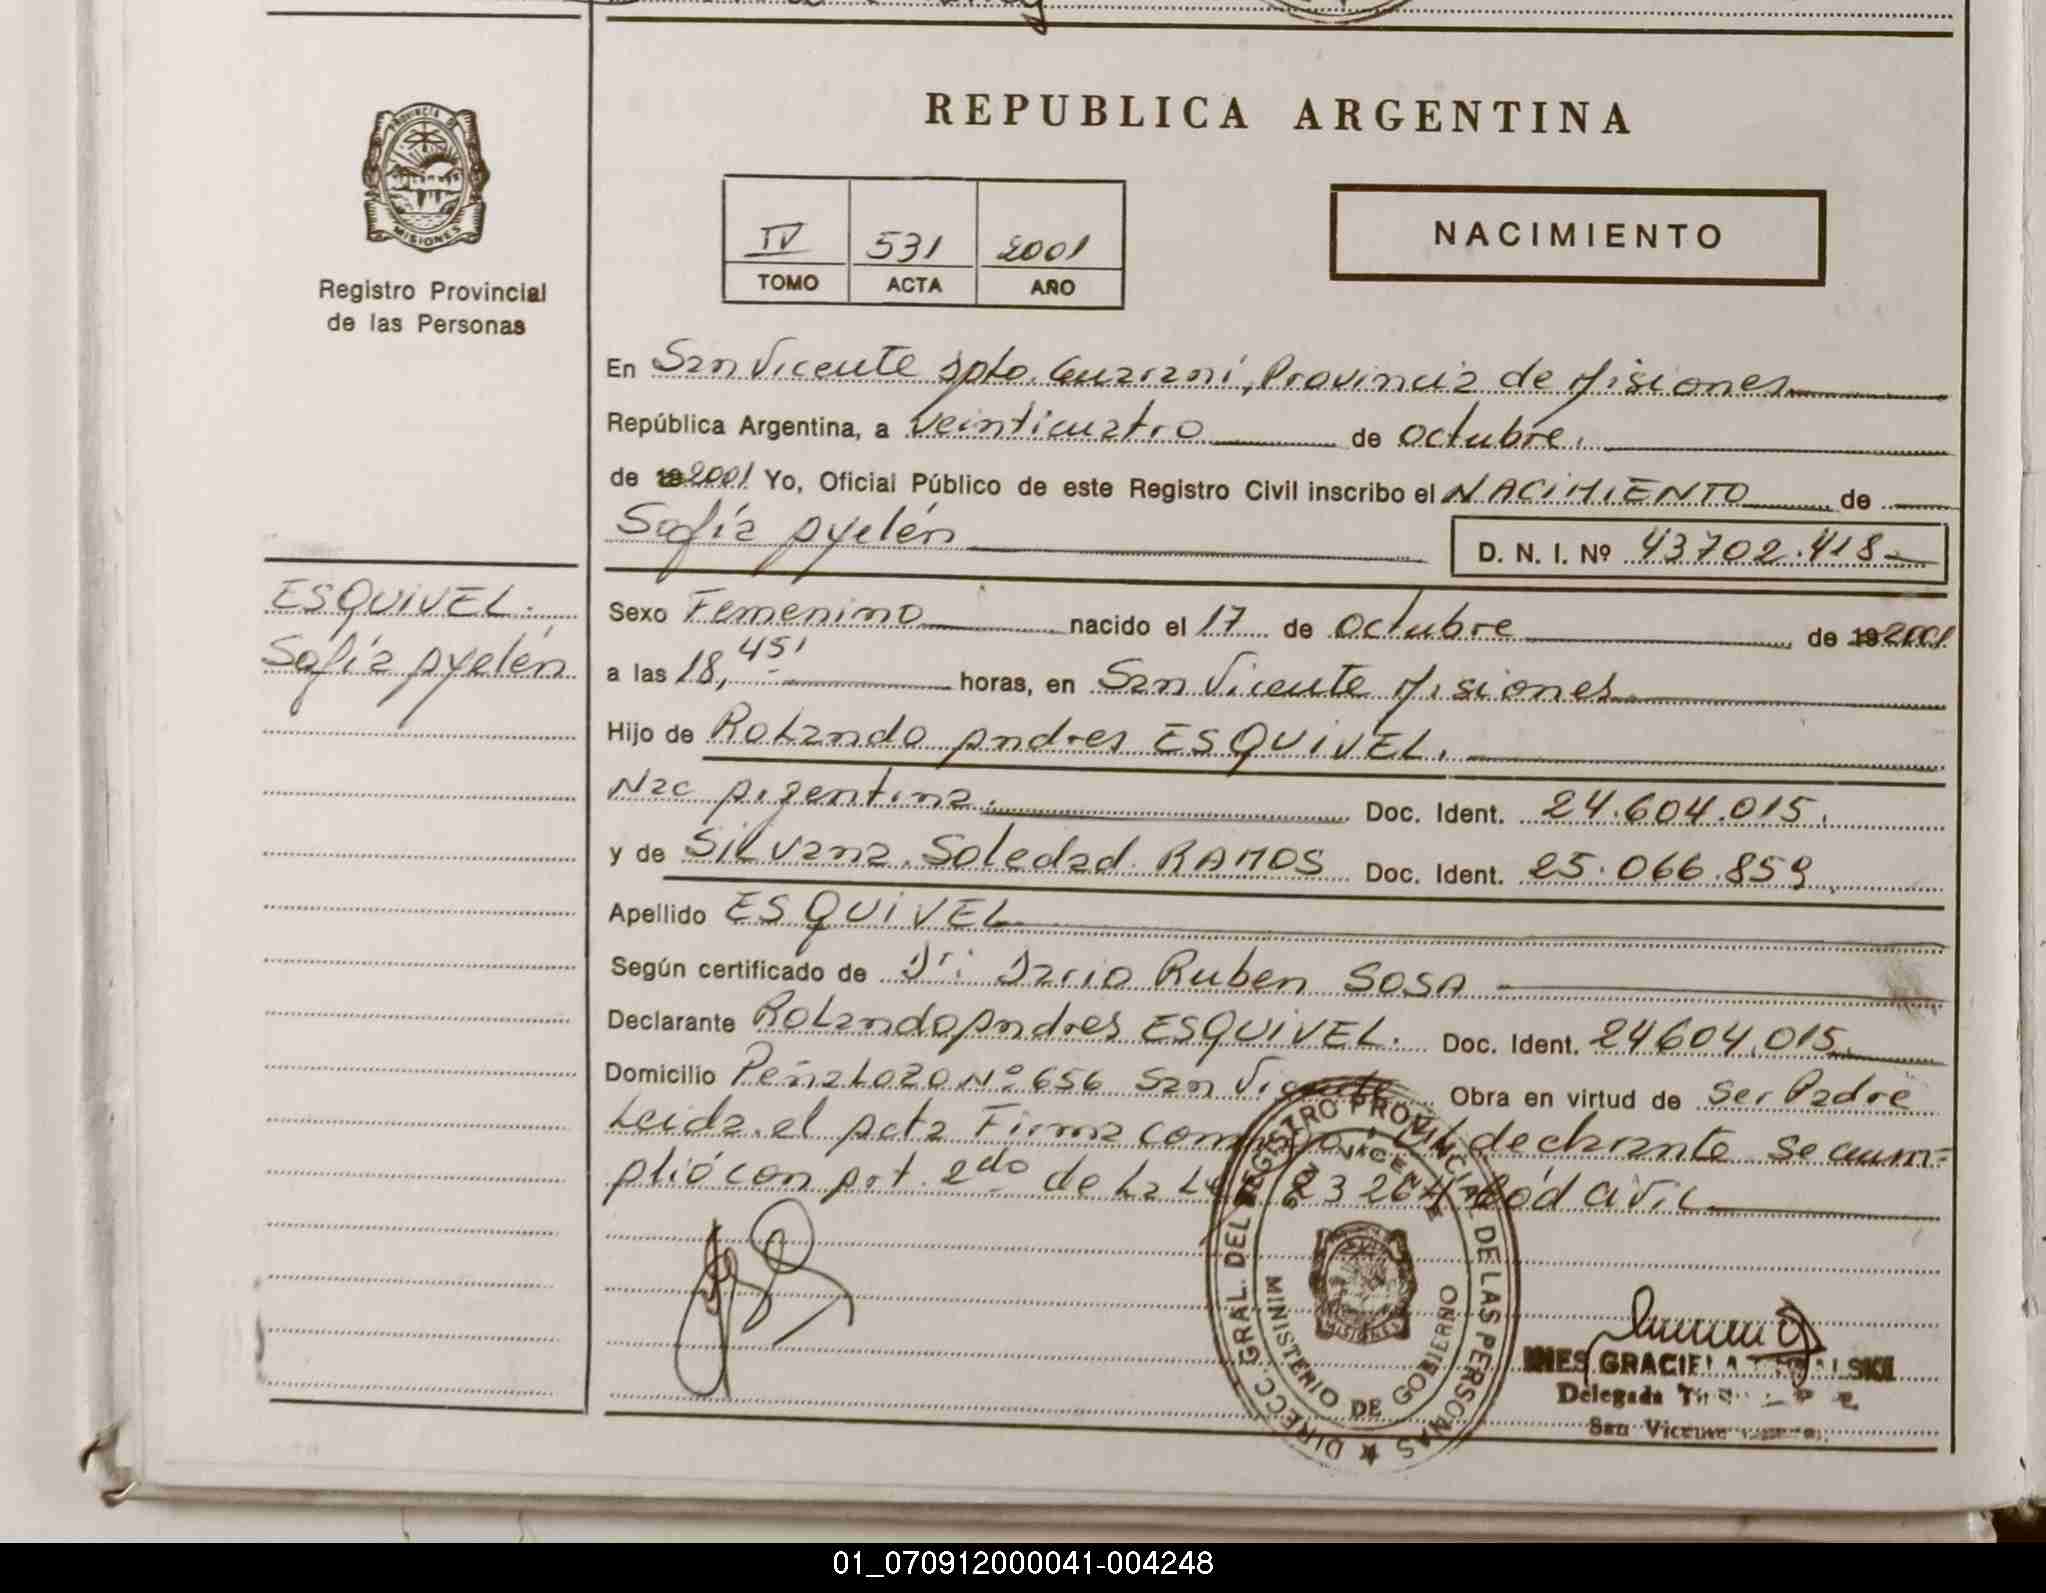 REPUBLICA ARGENTINA
PROVINCIA DE
MISIONES
Registro Provincial
de las Personas
IV 531 2001
TOMO ACTA AÑO
NACIMIENTO
En San Vicente Dpto. Guaraní, Provincia de Misiones
República Argentina, a veinticuatro de octubre.
de 19 2001 Yo, Oficial Público de este Registro Civil inscribo el NACIMIENTO de
Sofía Ayelén
D. N. I. Nº 43702.418
ESQUIVEL.
Sofía Ayelén
Sexo Femenino nacido el 17 de octubre de 19 2001
a las 18,45' horas, en San Vicente Misiones
Hijo de Rolando Andres ESQUIVEL.
Nac Argentina. Doc. Ident. 24.604.015.
y de Silvana Soledad RAMOS Doc. Ident. 25.066.859
Apellido ESQUIVEL
Según certificado de Dr: Dario Ruben SOSA
Declarante Rolando Andres ESQUIVEL. Doc. Ident. 24604.015.
Domicilio Peñalozo Nº 656 San Vicente Obra en virtud de ser Padre
Leida el Acta Firma conmigo el declarante se cum=
plió con Art. 2do de la Ley 23264 Cód Civil
DIRECC. GRAL. DEL REGISTRO PROVINCIAL DE LAS PERSONAS
SAN VICENTE
MINISTERIO DE GOBIERNO
MISIONES
INES GRACIELA
Delegada
San Vicente
01_070912000041-004248